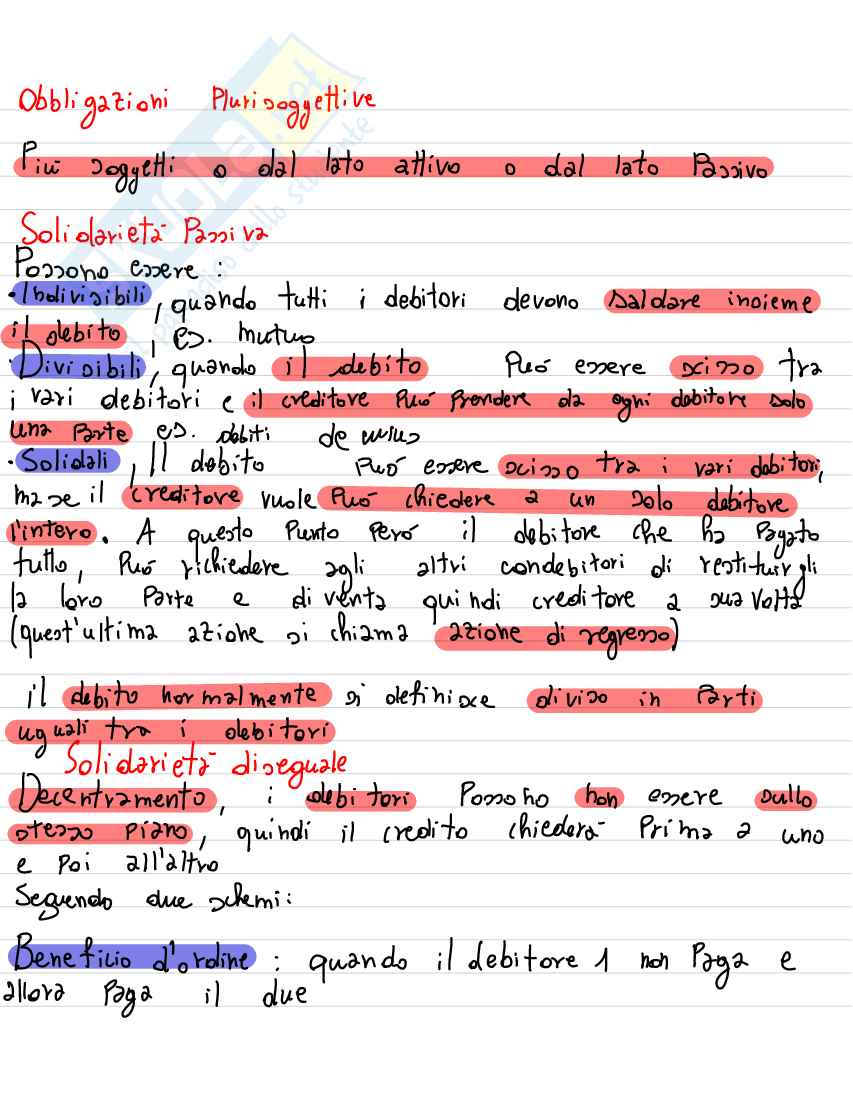 Obbligazioni Plurisoggettive
Più soggetti o dal lato attivo o dal lato Passivo
Solidarietà Passiva
Possono essere :
·Indivisibili, quando tutti i debitori devono saldare insieme
il debito, es. mutuo
·Divisibili, quando il debito Puó essere scisso tra
i vari debitori e il creditore Puó Prendere da ogni debitore solo
una Parte es. debiti de
·Solidali, Il debito Puó essere scisso tra i vari debitori,
ma se il creditore vuole Puó chiedere a un solo debitore
l'intero. A questo Punto Peró il debitore che ha Pagato
tutto, Puó richiedere agli altri condebitori di restituirgli
la loro Parte e diventa quindi creditore a sua volta
(quest'ultima azione si chiama azione di regresso)
il debito normalmente si definisce diviso in Parti
uguali tra i debitori
Solidarietà diseguale
Decentramento, i debitori Possono non essere sullo
stesso piano, quindi il credito chiederà Prima a uno
e Poi all'altro
Seguendo due schemi:
Beneficio d'ordine : quando il debitore 1 non Paga e
allora Paga il due